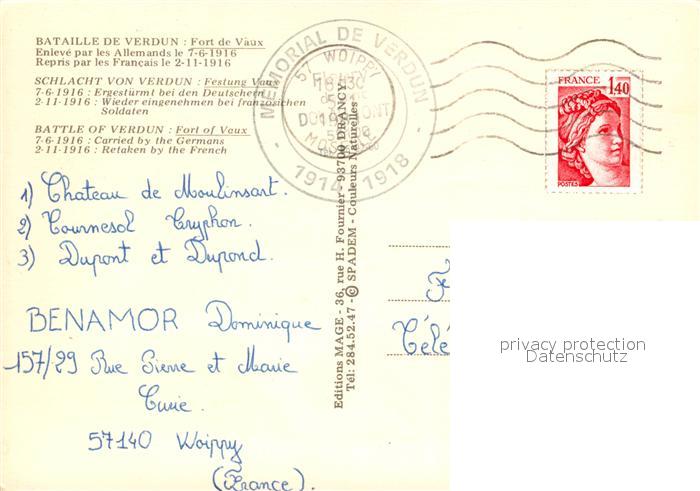 BATAILLE DE VERDUN : Fort de Vaux
Enlevé par les Allemands le 7-6-1916
Repris par les Français le 2-11-1916
SCHLACHT VON VERDUN : Festung Vaux
7-6-1916 : Ergestürmt bei den Deutschern
2-11-1916 : Wieder eingenehmen bei französischen
Soldaten
BATTLE OF VERDUN : Fort of Vaux
7-6-1916 : Carried by the Germans
2-11-1916 : Retaken by the French
MEMORIAL DE VERDUN
1914 - 1918
57 WOIPPY
FRANCE
1,40
POSTES
1) Chateau de Moulinsart.
2) Tournesol Tryphon.
3) Dupont et Dupond.
BENAMOR Dominique
157/29 Rue Pierre et Marie
Curie.
57140 Woippy
(France).
Editions MAGE - 36, rue H. Fournier - 93700 DRANCY
Tél: 284.52.47 - © SPADEM - Couleurs Naturelles
Télé
privacy protection
Datenschutz